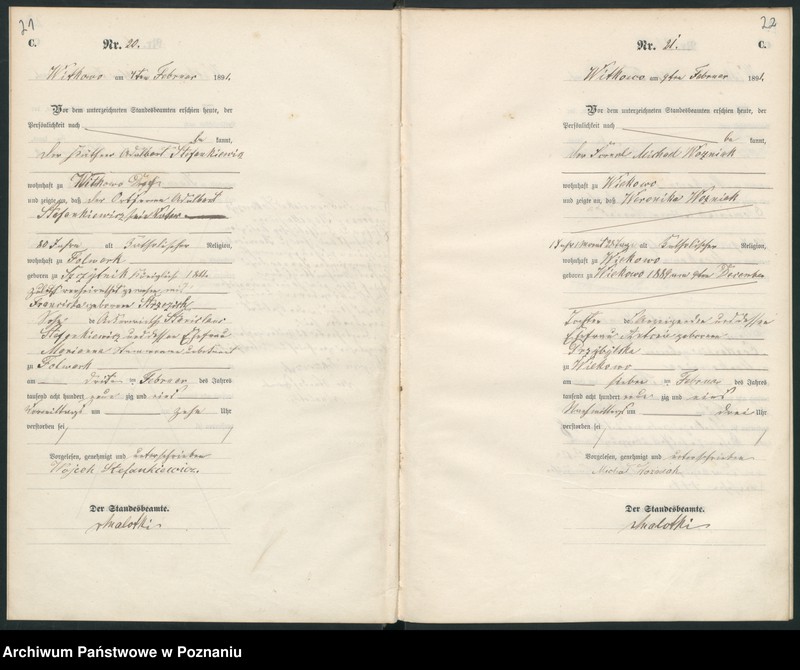 21
C.
Nr. 20.
Witkowo am 4ten Februar 1891.
Vor dem unterzeichneten Standesbeamten erschien heute, der
Persönlichkeit nach
be kannt,
der Häusler Adalbert Stefankiewicz
wohnhaft zu Witkowo Dorf
und zeigte an, daß der Ortsarme Adalbert
Stefankiewicz, sein Vater
80 Jahre alt Katholischer Religion,
wohnhaft zu Folwark
geboren zu
zuletzt verheirathet gewesen mit
Francisca geborene
Sohn Stanislaus
Stefankiewicz und dessen Ehefrau
Marianna
zu Folwark
am dritten Februar des Jahres
tausend acht hundert neun zig und eins
Vormittags um zehn Uhr
verstorben sei
Vorgelesen, genehmigt und unterschrieben
Wojcch Stefankiewicz.
Der Standesbeamte.
Malotki
22
C.
Nr. 21.
Witkowo am 9ten Februar 1891.
Vor dem unterzeichneten Standesbeamten erschien heute, der
Persönlichkeit nach
be kannt,
der Michael Wozniak
wohnhaft zu Wiekowo
und zeigte an, daß Veronika Wozniak
1 Jahr 1 Monat alt Katholischer Religion,
wohnhaft zu Wiekowo
geboren zu Wiekowo 1889 am 9ten December
Tochter des Anzeigenden und dessen
Ehefrau geborenen
Przybylska
zu Wiekowo
am sieben Februar des Jahres
tausend acht hundert neun zig und eins
Nachmittags um drei Uhr
verstorben sei
Vorgelesen, genehmigt und unterschrieben
Der Standesbeamte.
Malotki
Archiwum Państwowe w Poznaniu